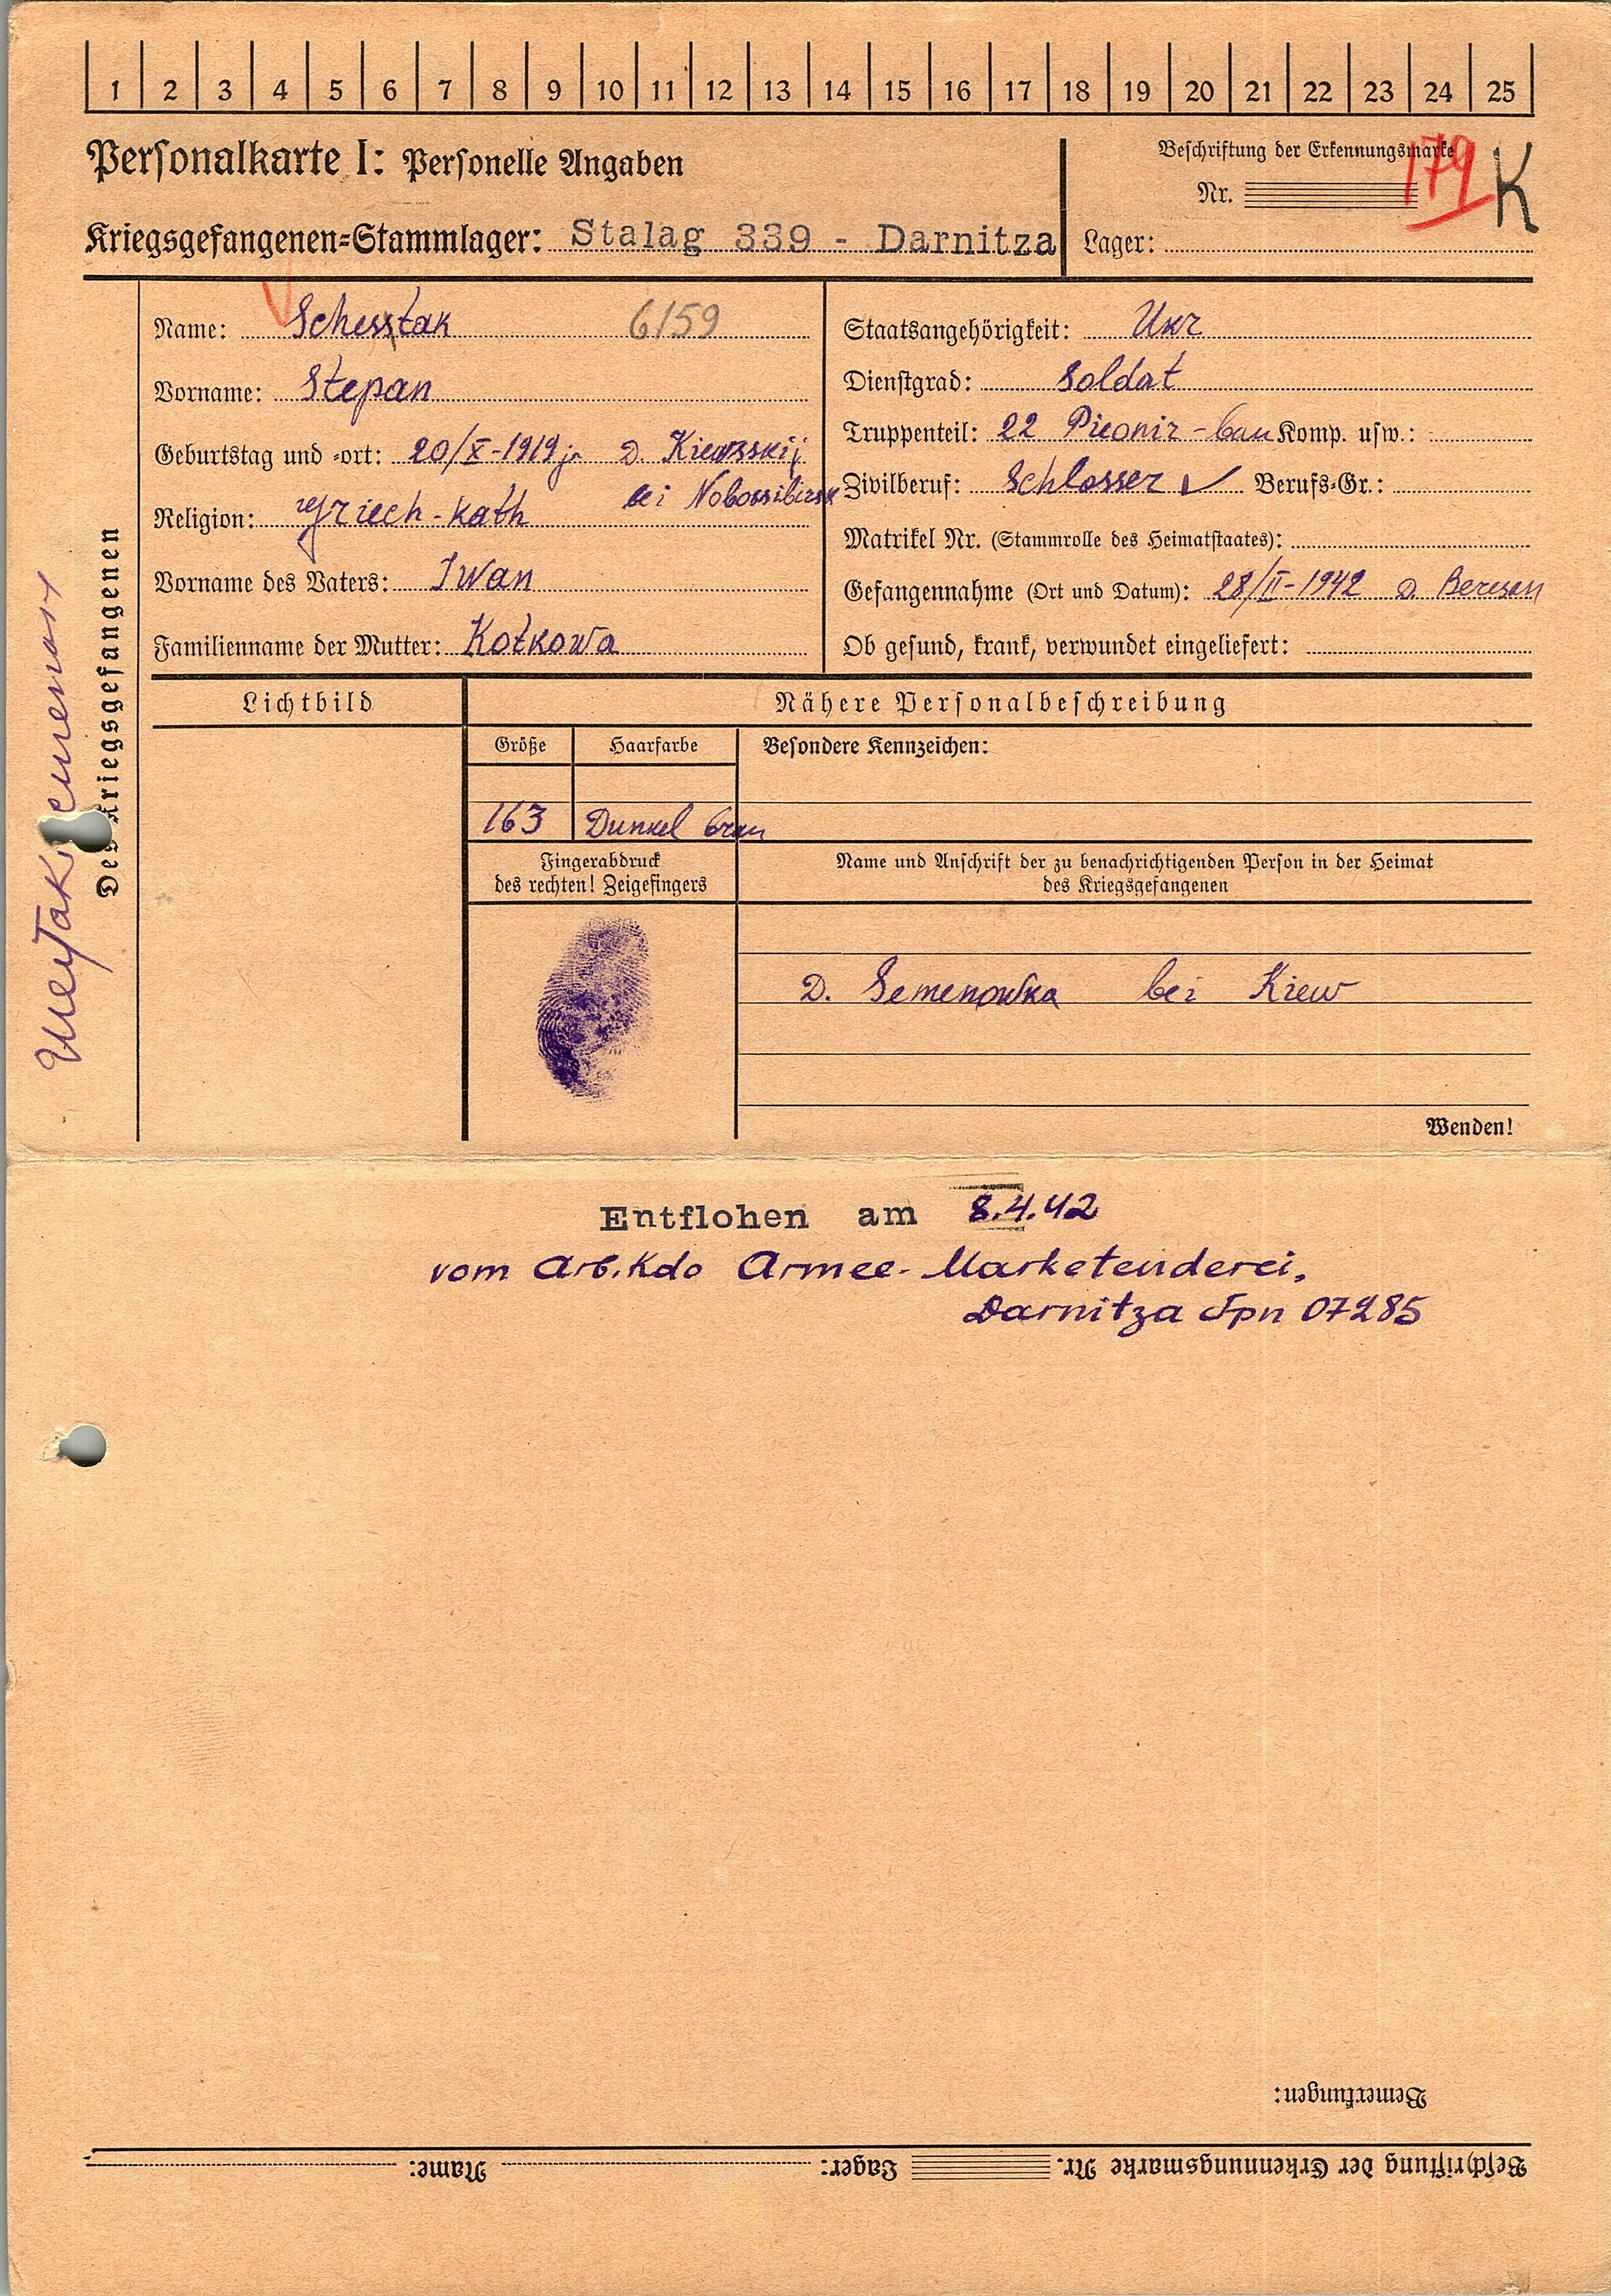 1 2 3 4 5 6 7 8 9 10 11 12 13 14 15 16 17 18 19 20 21 22 23 24 25
Personalkarte I: Personelle Angaben
Beschriftung der Erkennungsmarke
Nr. 179 K
Kriegsgefangenen-Stammlager: Stalag 339 - Darnitza
Lager:
Des Kriegsgefangenen
Name: Schestak 6159
Vorname: Stepan
Geburtstag und -ort: 20/X-1919 D. Kiewsskij
bei Nobossibirsk
Religion: Griech-Kath
Vorname des Vaters: Iwan
Familienname der Mutter: Kotkowa
Staatsangehörigkeit: Ukr
Dienstgrad: Soldat
Truppenteil: 22 Pieonir-bau Komp. usw.:
Zivilberuf: Schlosser Berufs-Gr.:
Matrikel Nr. (Stammrolle des Heimatstaates):
Gefangennahme (Ort und Datum): 28/II-1942 D.
Ob gesund, krank, verwundet eingeliefert:
Lichtbild
Nähere Personalbeschreibung
Größe Haarfarbe Besondere Kennzeichen:
163 Dunkel
Fingerabdruck
des rechten! Zeigefingers
Name und Anschrift der zu benachrichtigenden Person in der Heimat
des Kriegsgefangenen
D. Semenowka bei Kiew
Wenden!
Entflohen am 8.4.42
vom Arb.Kdo Armee-Marketenderei,
Darnitza Fpn 07285
Bemerkungen:
Beschriftung der Erkennungsmarke Nr. Lager: Name: